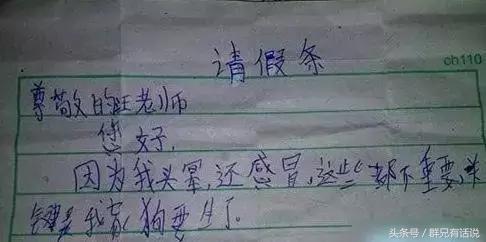 请假条
ch110
尊敬的旺老师
您好,
因为我头晕,还感冒,这些都不重要,关
键是我家狗要生了。
头条号/群兄有话说